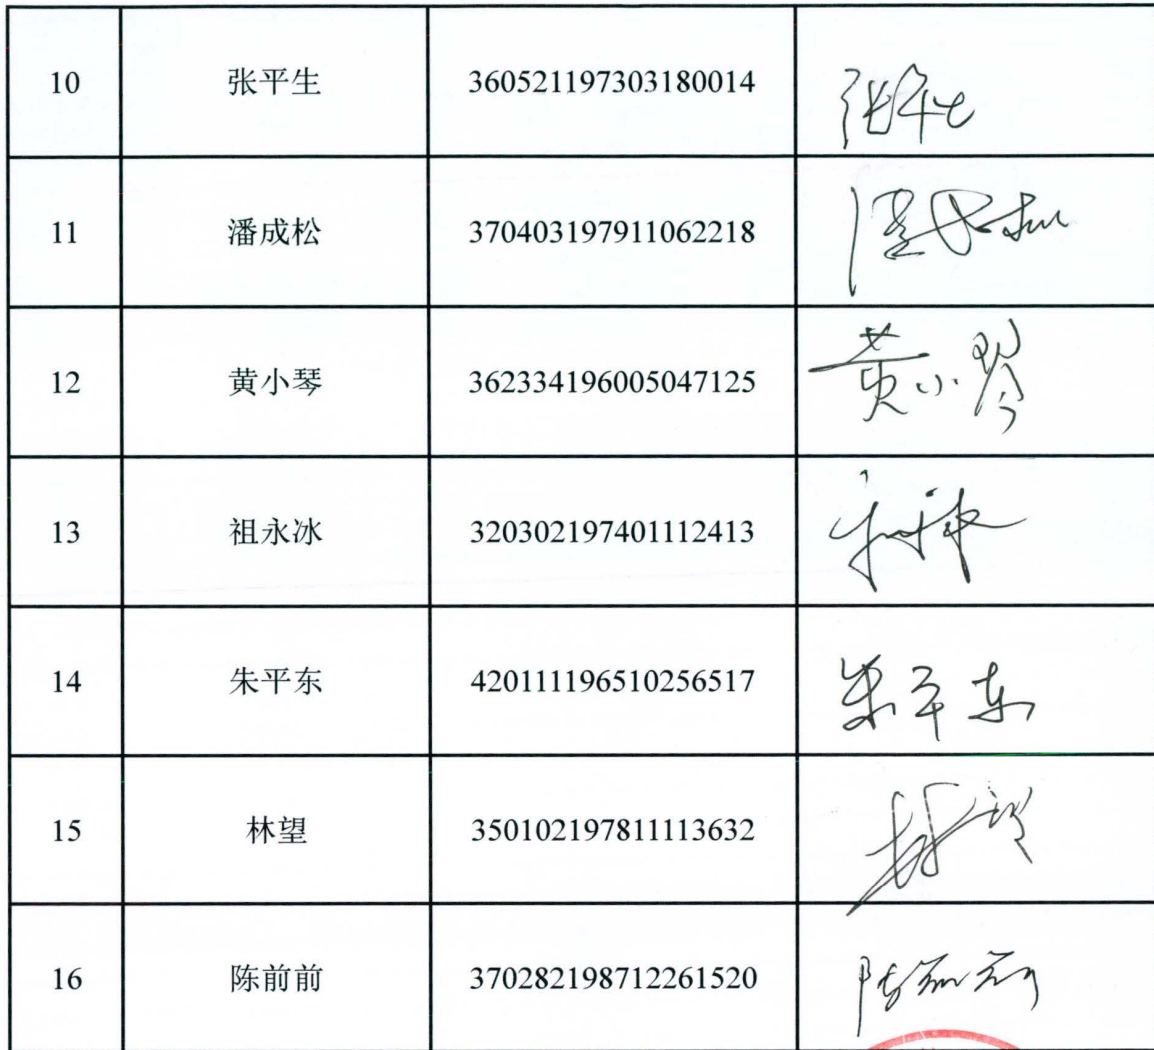 10 张平生 360521197303180014 张平生
11 潘成松 370403197911062218 潘成松
12 黄小琴 362334196005047125 黄小琴
13 祖永冰 320302197401112413
14 朱平东 420111196510256517 朱平东
15 林望 350102197811113632 林望
16 陈前前 370282198712261520 陈前前